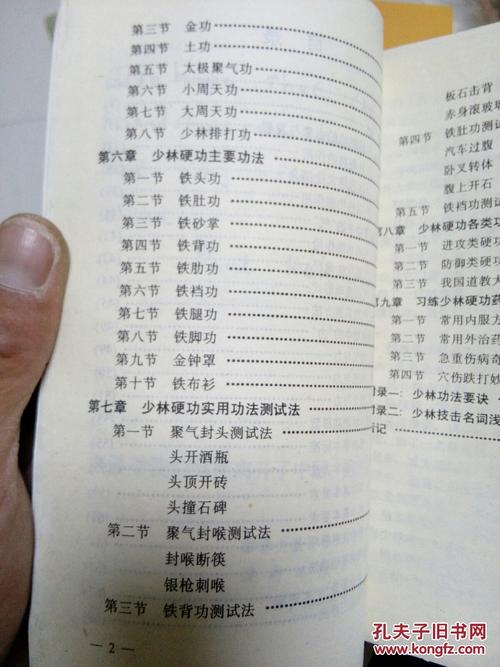 第三节 金功
第四节 土功
第五节 太极聚气功
第六节 小周天功
第七节 大周天功
第八节 少林排打功
第六章 少林硬功主要功法
第一节 铁头功
第二节 铁肚功
第三节 铁砂掌
第四节 铁背功
第五节 铁肋功
第六节 铁裆功
第七节 铁腿功
第八节 铁脚功
第九节 金钟罩
第十节 铁布衫
第七章 少林硬功实用功法测试法
第一节 聚气封头测试法
头开酒瓶
头顶开砖
头撞石碑
第二节 聚气封喉测试法
封喉断筷
银枪刺喉
第三节 铁背功测试法
— 2 —
板石击背
赤身滚玻
第四节 铁肚功测试
汽车过腹
卧叉转体
腹上开石
第五节 铁裆功测试
第八章 少林硬功各类功
第一节 进攻类硬功
第二节 防御类硬功
第三节 我国道教大
第九章 习练少林硬功药
第一节 常用内服方
第二节 常用外治药
第三节 急重伤病奇
第四节 穴伤跌打妙
录一:少林功法要诀
录二:少林技击名词浅
记
孔夫子旧书网
www.kongfz.com